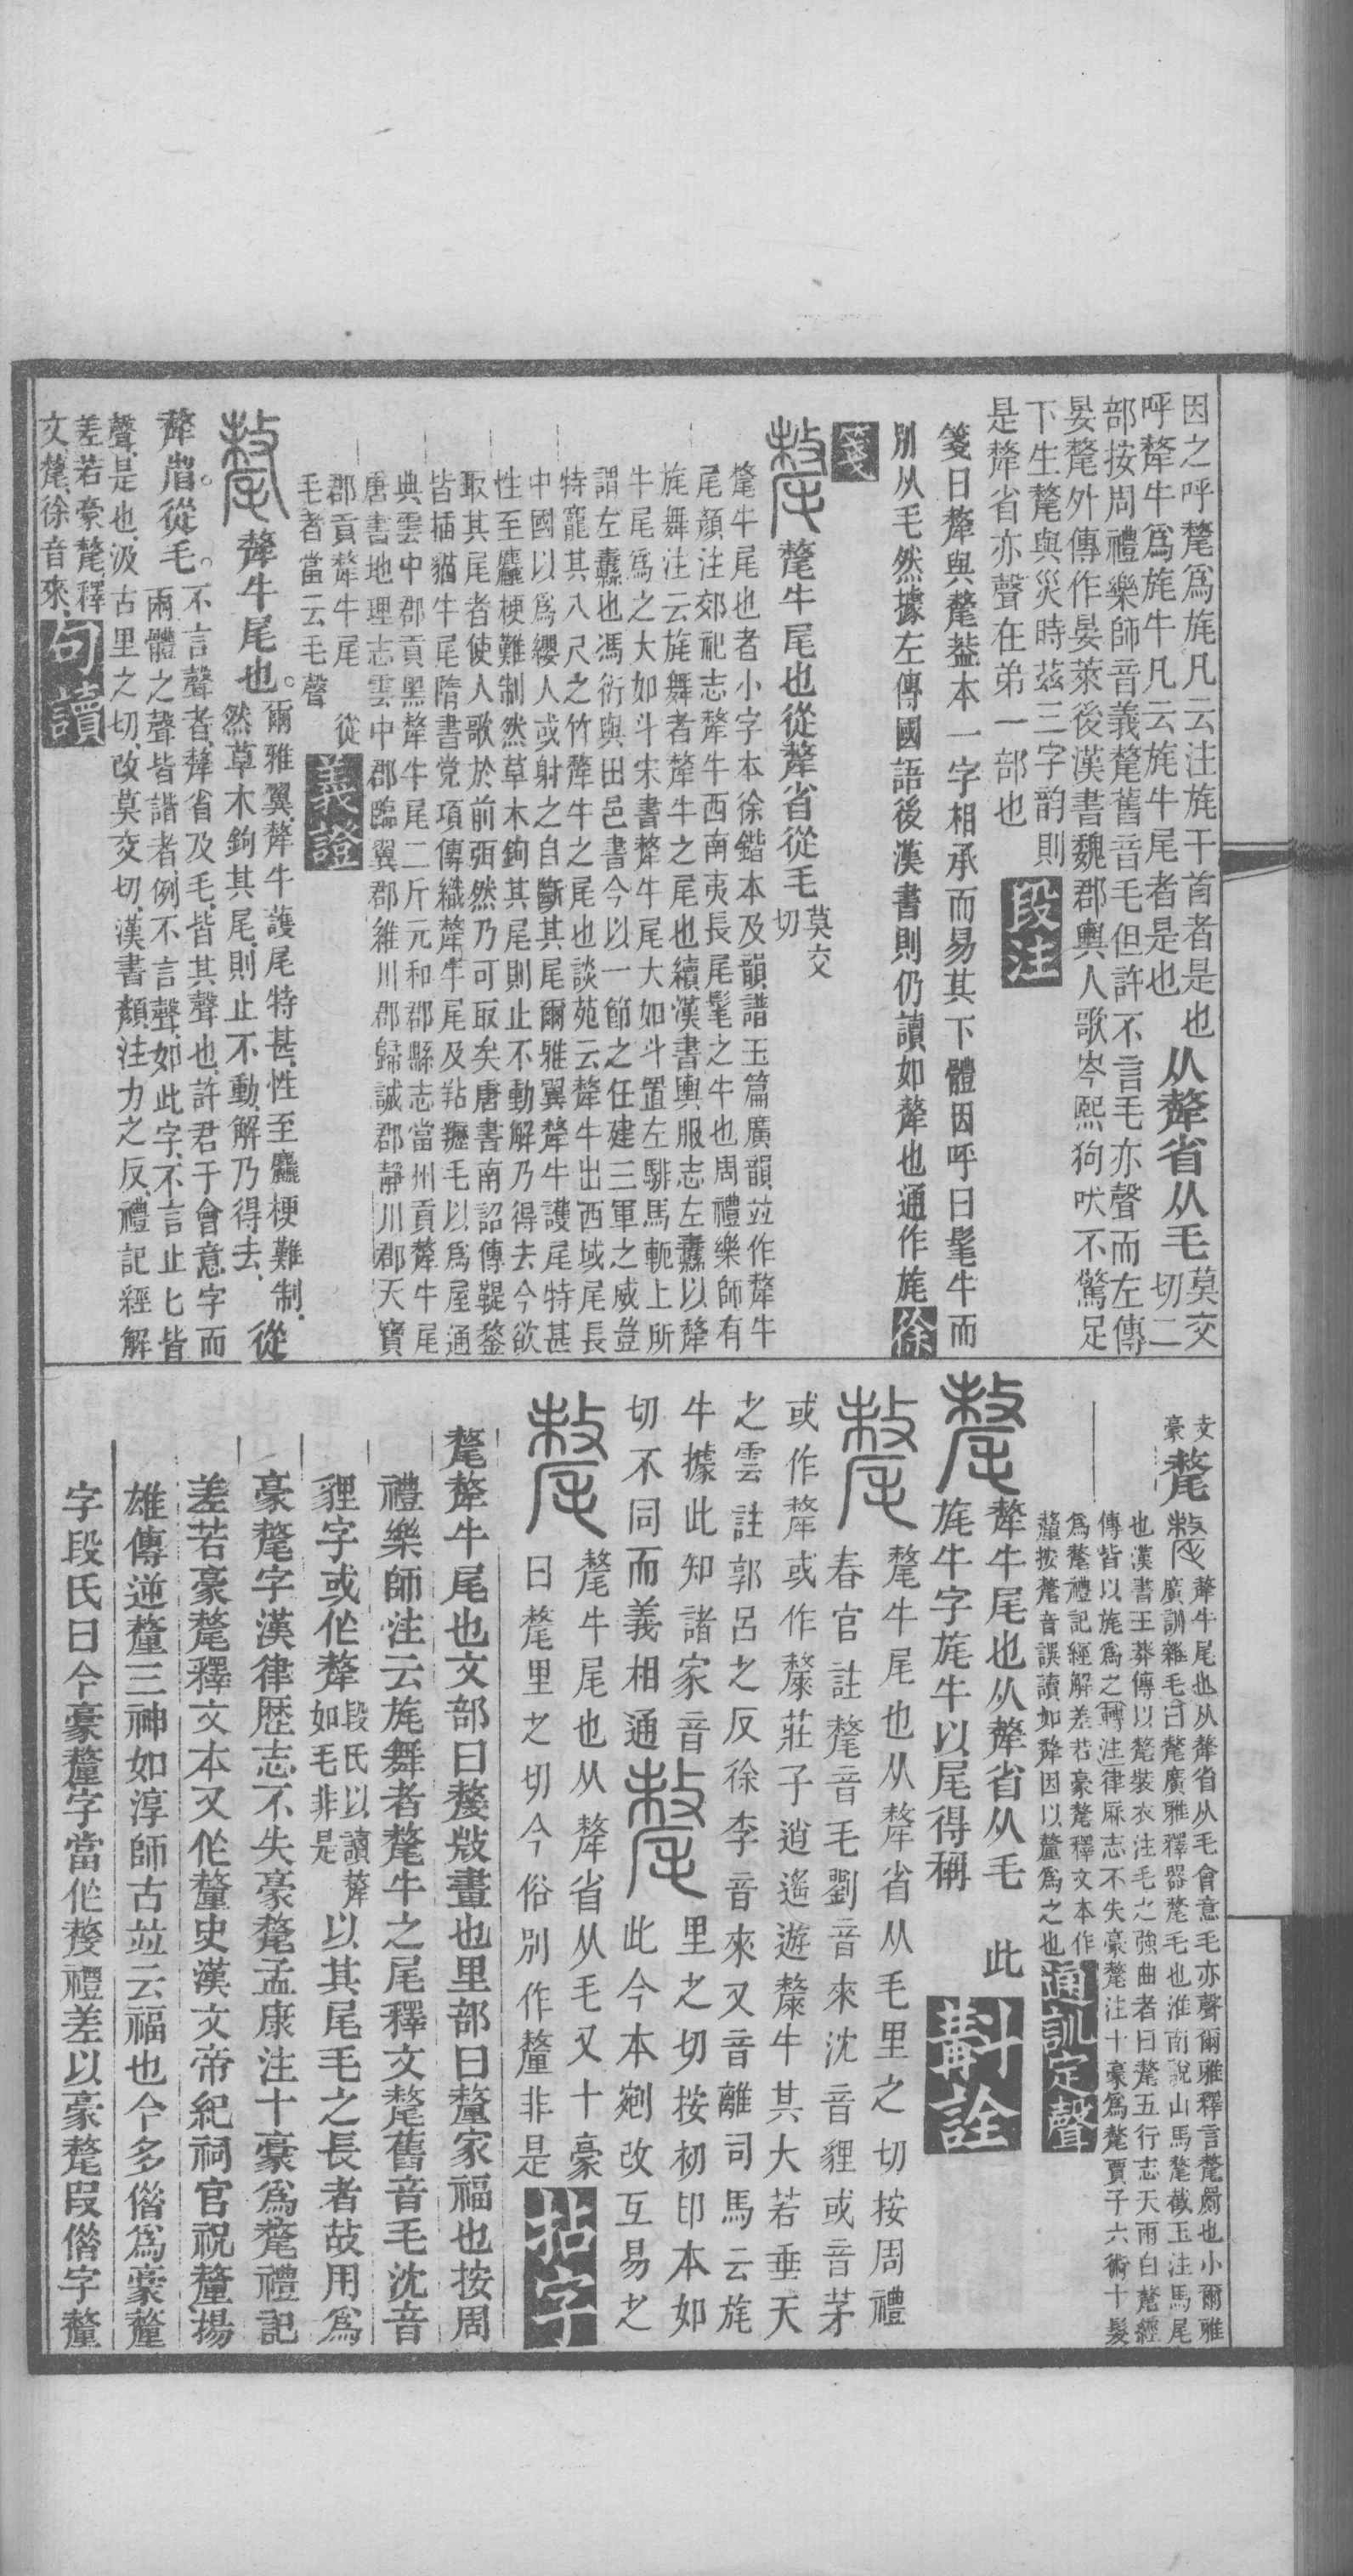 因之呼氂爲旄凡云注旄干首者是也
呼犛牛爲旄牛凡云旄牛尾者是也
从犛省从毛
莫交
切二
部按周禮樂師音義氂舊音毛但許不言毛亦聲而左傳
晏氂外傳作晏萊後漢書魏郡輿人歌岑熙狗吠不驚足
下生氂與災時茲三字韵則
是犛省亦聲在弟一部也
段注
箋曰犛與氂葢本一字相承而易其下體因呼曰髦牛而
別从毛然據左傳國語後漢書則仍讀如犛也通作旄
徐
箋
氂牛尾也從犛省從毛
莫交
切
氂牛尾也者小字本徐鍇本及韻譜玉篇廣韻竝作犛牛
尾顏注郊祀志犛牛西南夷長尾髦之牛也周禮樂師有
旄舞注云旄舞者犛牛之尾也續漢書輿服志左纛以犛
牛尾爲之大如斗宋書犛牛尾大如斗置左騑馬軛上所
謂左纛也馮衍與田邑書今以一節之任建三軍之威豈
特寵其八尺之竹犛牛之尾也談苑云犛牛出西域尾長
中國以爲纓人或射之自斷其尾爾雅翼犛牛護尾特甚
性至麤梗難制然草木鉤其尾則止不動解乃得去今欲
取其尾者使人歌於前弭然乃可取矣唐書南詔傳鞮鍪
皆插貓牛尾隋書党項傳織犛牛尾及䍽䍠毛以爲屋通
典雲中郡貢黑犛牛尾二斤元和郡縣志當州貢犛牛尾
唐書地理志雲中郡臨翼郡維川郡歸誠郡靜川郡天寶
郡貢犛牛尾 從
毛者當云毛聲
義證
犛牛尾也。
爾雅翼、犛牛護尾特甚、性至麤梗難制、
然草木鉤其尾、則止不動、解乃得去、
從
犛省。從毛。
不言聲者、犛省及毛、皆其聲也、許君于會意字而
兩體之聲皆諧者、例不言聲、如此字、不言止匕皆
聲、是也、汲古里之切、改莫交切、漢書顏注力之反、禮記經解
差若豪氂釋
文、氂、徐音來、
句讀
支
豪
氂
犛牛尾也从犛省从毛會意毛亦聲爾雅釋言氂罽也小爾雅
廣訓雜毛曰氂廣雅釋器氂毛也淮南說山馬氂截玉注馬尾
也漢書王莽傳以氂裝衣注毛之強曲者曰氂五行志天雨白氂經
傳皆以旄爲之轉注律厤志不失豪氂注十豪爲氂賈子六術十髮
爲氂禮記經解差若豪氂釋文本作
釐按氂音誤讀如犛因以釐爲之也
通訓定聲
犛牛尾也从犛省从毛 此
旄牛字旄牛以尾得稱
斠詮
氂牛尾也从犛省从毛里之切按周禮
春官註氂音毛劉音來沈音貍或音茅
或作犛或作斄莊子逍遙遊斄牛其大若垂天
之雲註郭呂之反徐李音來又音離司馬云旄
牛據此知諸家音里之切按初印本如
切不同而義相通
此今本剜改互易之
氂牛尾也从犛省从毛又十豪
曰氂里之切今俗別作釐非是
拈字
氂犛牛尾也文部曰嫠㱾畫也里部曰釐家福也按周
禮樂師注云旄舞者氂牛之尾釋文氂舊音毛沈音
貍字或作犛
段氏以讀犛
如毛非是
以其尾毛之長者故用爲
豪氂字漢律歷志不失豪氂孟康注十豪爲氂禮記
差若豪氂釋文本又作釐史漢文帝紀祠官祝釐揚
雄傳逆釐三神如淳師古竝云福也今多偺爲豪釐
字段氏曰今豪釐字當作嫠禮差以豪氂叚偺字釐